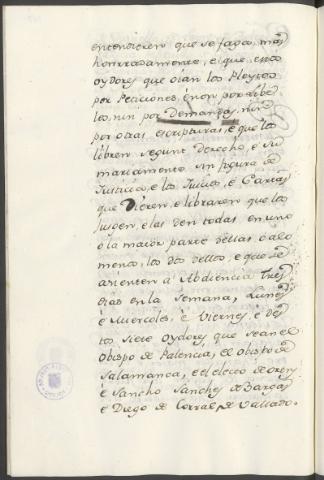 entendieren que se faga, mas
honrradamente, e que estos
oydores que oian los Pleytos
por Peticiones, é non por Libe-
los, nin por Demandas, nin
por otras escripturas, e que los
libren segunt derecho, e su
mariamente sin figura de
Justicia, e los Juicios, e Cartas
que Dieren, e libraren que los
Jusgen, e las den todas en uno
o la maior parte dellas, o alo
menos, los dos dellos, e que se
asienten à Abdiencia tres
dias en la semana, Lunes
e Miercoles, è Viernes, e des
tos siete oydores, que sean el
obispo de Palencia, e el obispo de
Salamanca, e el electo de orens
è Sancho Sanches de Burgos
e Diego de Corral, de Vallado-